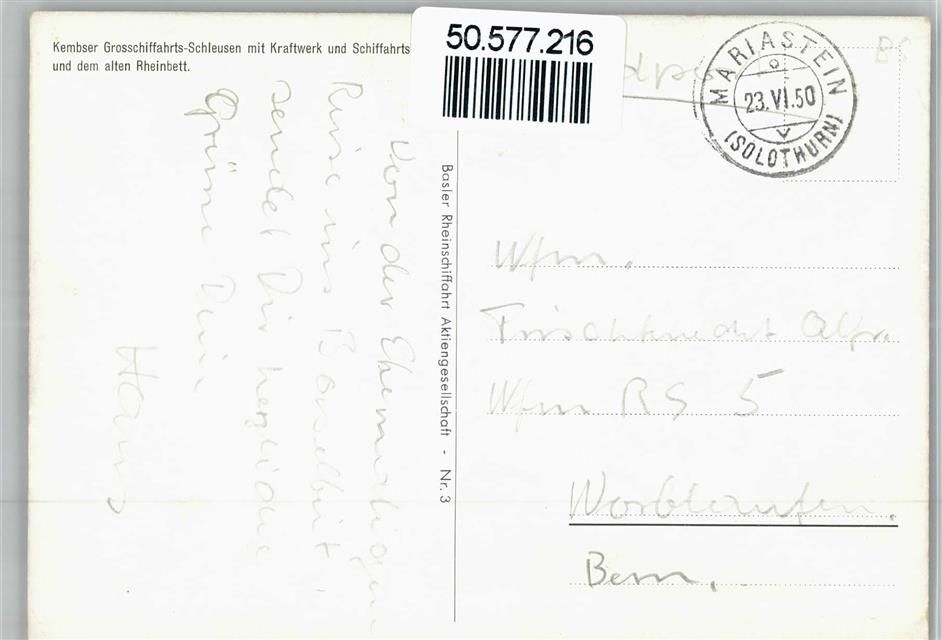 Kembser Grosschiffahrts-Schleusen mit Kraftwerk und Schiffahrts
und dem alten Rheinbett.
50.577.216
MARIASTEIN
23.VI.50
(SOLOTHURN)
Von der
Reise ins
sendet Dir herzliche
Grüsse Dein
Hans
Basler Rheinschiffahrt Aktiengesellschaft - Nr. 3
Wfm.
Frischknecht Alfr.
Wfm RS 5
Worblaufen.
Bern.